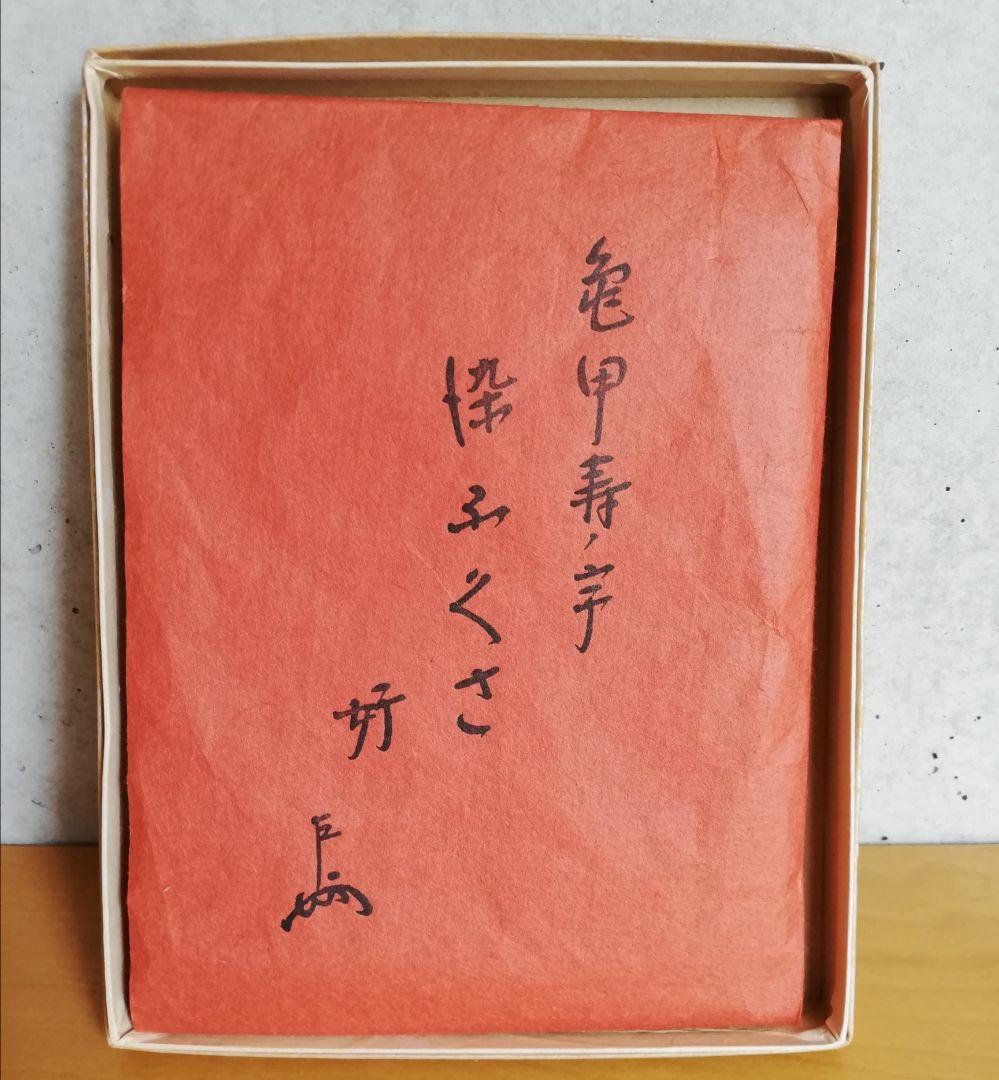 亀甲寿ノ字
染ふくさ
好